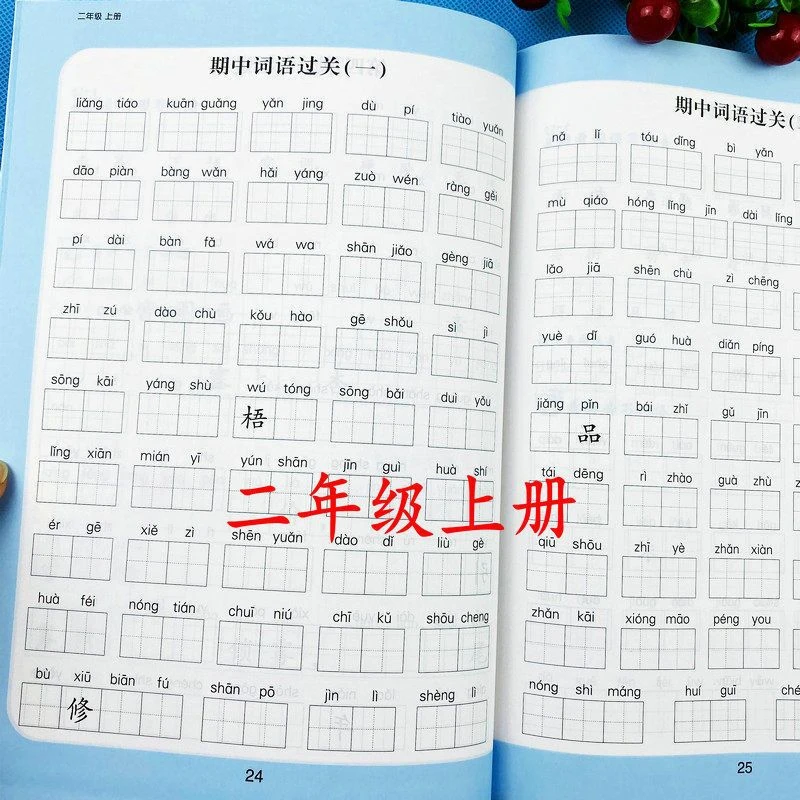 二年级 上册
期中词语过关(一)
liǎng tiáo kuān guǎng yǎn jing dù pí tiào yuǎn
dāo piàn bàng wǎn hǎi yáng zuò wén ràng gěi
pí dài bàn fǎ wá wa shān jiǎo gèng jiā
zhī zú dào chù kǒu hào gē shǒu sì jì
sōng kāi yáng shù wú tóng sōng bǎi duì yǒu
梧
lǐng xiān mián yī yún shān jīn guì huà shí
ér gē xiě zì shēn yuǎn dào dǐ liù gè
huà féi nóng tián chuī niú chī kǔ shōu cheng
bù xiū biān fú shān pō jìn lì shèng lì
修
24
期中词语过关(
nǎ lǐ tóu dǐng bì yǎn
mù qiáo hóng lǐng jīn dài lǐng
lǎo jiā shēn chù zì chēng
yuè dǐ guó huà diǎn píng
jiǎng pǐn bái zhǐ gǔ jīn
品
tái dēng rì zhào guà zhù
qiū shōu zhī yè zhǎn xiàn
zhǎn kāi xióng māo péng you
nóng shì máng huí guī
25
二年级上册